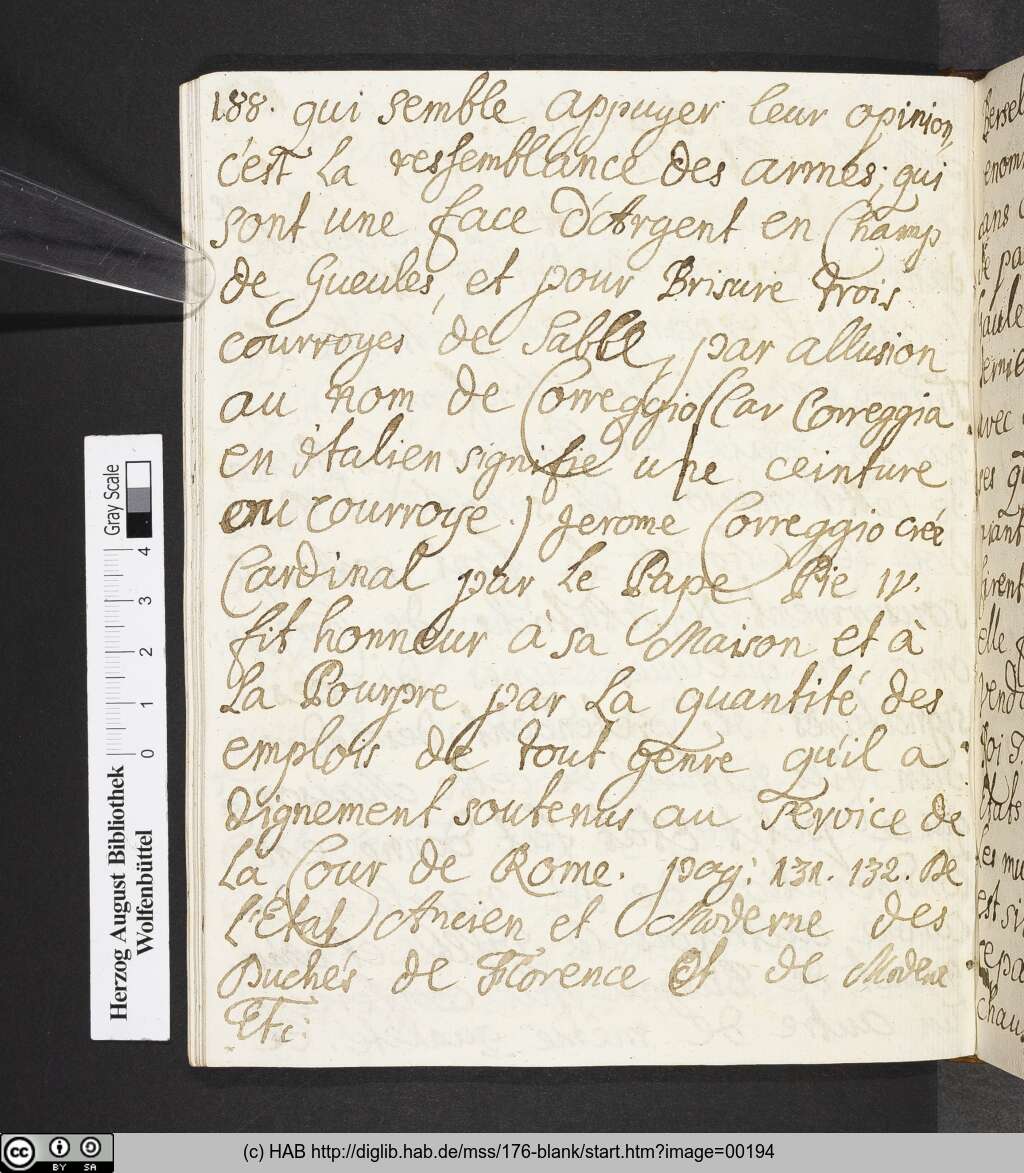 188. qui semble appuyer leur opinion,
c'est la ressemblance des armes; qui
sont une face d'Argent en Champ
de Gueules, et pour Brisure trois
courroyes de Sable, par allusion
au nom de Correggio (Car Correggia
en Italien signifie une ceinture
ou courroye.) Jerome Correggio créé
Cardinal par le Pape Pie IV.
fit honneur à sa Maison et à
la Pourpre par la quantité des
emplois de tout genre qu'il a
dignement soutenus au Service de
la Cour de Rome. pag: 131. 132. De
l'Etat Ancien et Moderne des
Duchés de Florence Et de Modene
Etc:
Gray Scale
0 1 2 3 4
Herzog August Bibliothek
Wolfenbüttel
elle
cc BY SA
(c) HAB http://diglib.hab.de/mss/176-blank/start.htm?image=00194